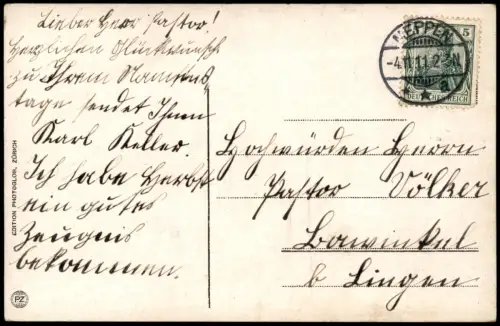 Lieber Herr Pastor!
Herzlichen Glückwunsch
zu Ihrem Namens
tage sendet Ihnen
Karl Keller.
Ich habe Herbst
ein gutes
Zeugnis
bekommen.
EDITION PHOTOGLOB, ZÜRICH
PZ
MEPPEN
-4.11.11.2-3N.
* a
5
DEUTSCHES REICH
Hochwürden Herrn
Pastor Völker
Bawinkel
b Lingen